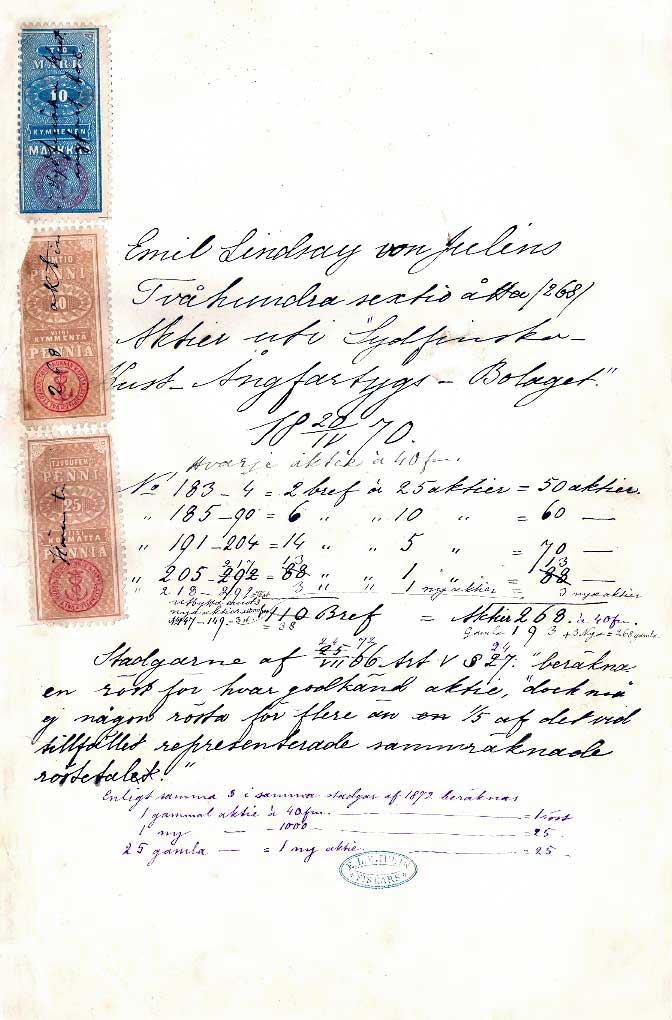 TIO
MARK
10
KYMMENEN
MARKKAA
PENNI
VIISI
KYMMENTÄ
PENNIÄ
268 aktier
TJUGUFEM
PENNI
25
VIISI
KOLMATTA
PENNIÄ
Emil Lindsay von Julins
Tvåhundra sextio åtta /268/
Aktier uti "Sydfinska-
Kust-Ångfartygs-Bolaget."
18 20/IV 70.
Hvarje aktie à 40 fm.
No 183-4 = 2 bref à 25 aktier = 50 aktier.
" 185-90 = 6 " " 10 " = 60 —
" 191-204 = 14 " " 5 " = 70 —
217 13 13
" 205-292 = 88 " " 1 " = 88 —
218-292 3 " 1 ny aktier = 3 nya aktier
147-149 - 3 110 Bref = Aktier 268. à 40 fm.
= 38 Gamla 193 + 3 Nya = 268 gamla.
24 72 24
Stadgarne af 25/VII 66 Art V § 27. "beräkna
en röst för hvar godkänd aktie, "dock må
ej någon rösta för flere än en 1/5 af det vid
tillfället representerade sammräknade
röstetalet."
Enligt samma § i samma stadgar af 1872 beräknas
1 gammal aktie à 40 fm. — = 1 röst
1 ny — 1000 — = 25 -
25 gamla — = 1 ny aktie — = 25 -
E. L. v. JULIN
FISKARS